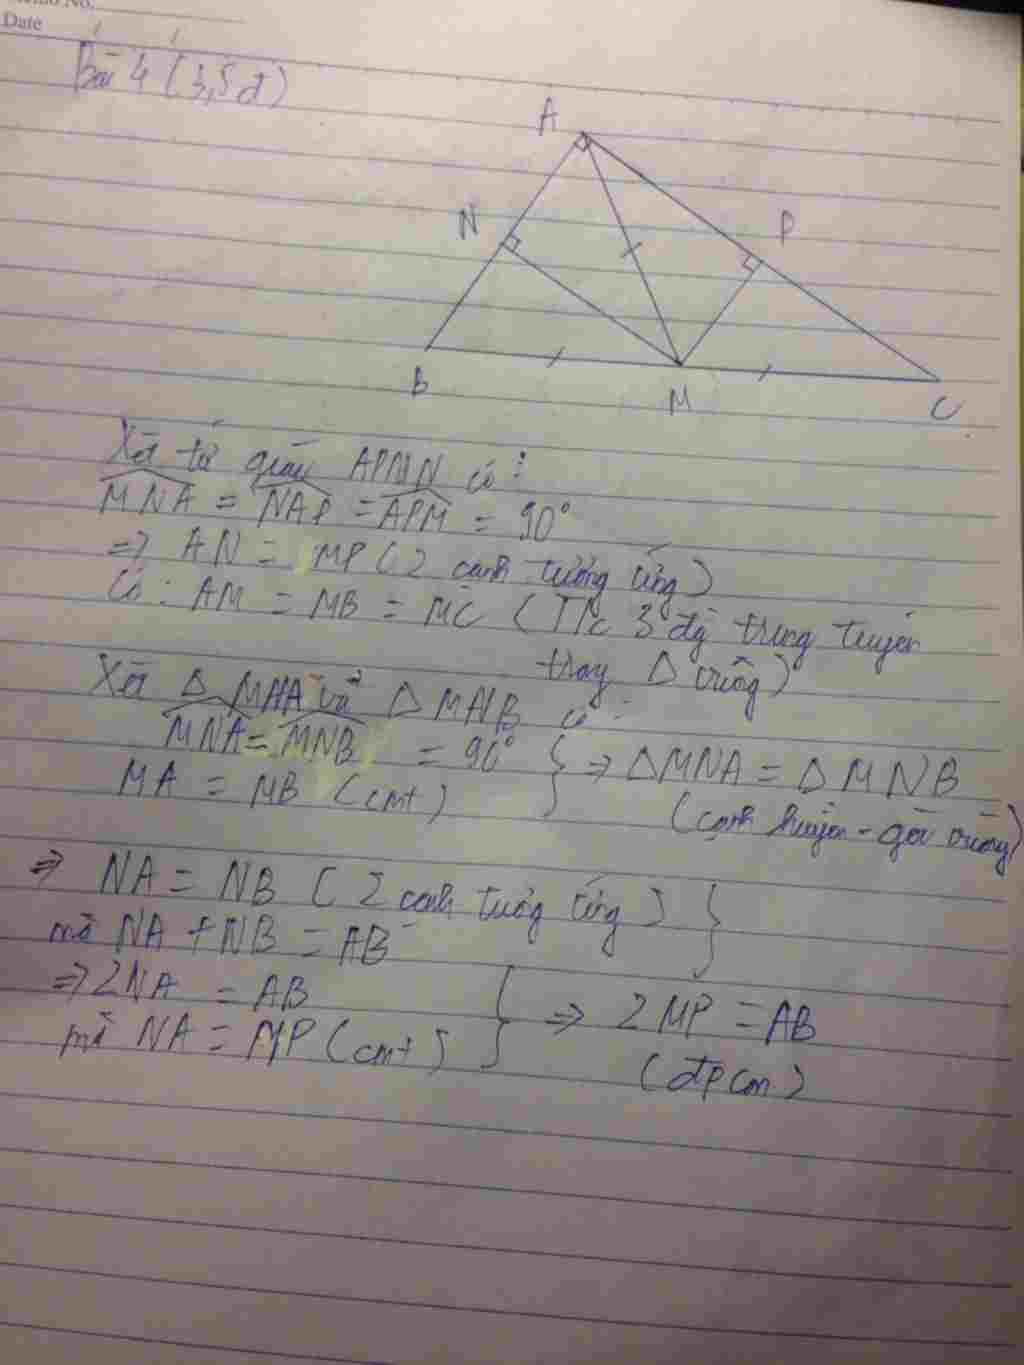 Memo No.
Date
Bài 4 (3,5đ)
A
N
P
B
M
C
Xét tứ giác APMN có:
MNA = NAP = APM = 90°
=> AN = MP (2 cạnh tương ứng)
Có: AM = MB = MC (T/c 3 đg trung tuyến
trong Δ vuông)
Xét Δ MNA và Δ MNB có:
MNA = MNB = 90°
MA = MB (cmt)
} => ΔMNA = ΔMNB
(cạnh huyền - góc vuông)
=> NA = NB (2 cạnh tương ứng)
mà NA + NB = AB
=> 2NA = AB
mà NA = MP (cmt)
} => 2MP = AB
(đpcm)